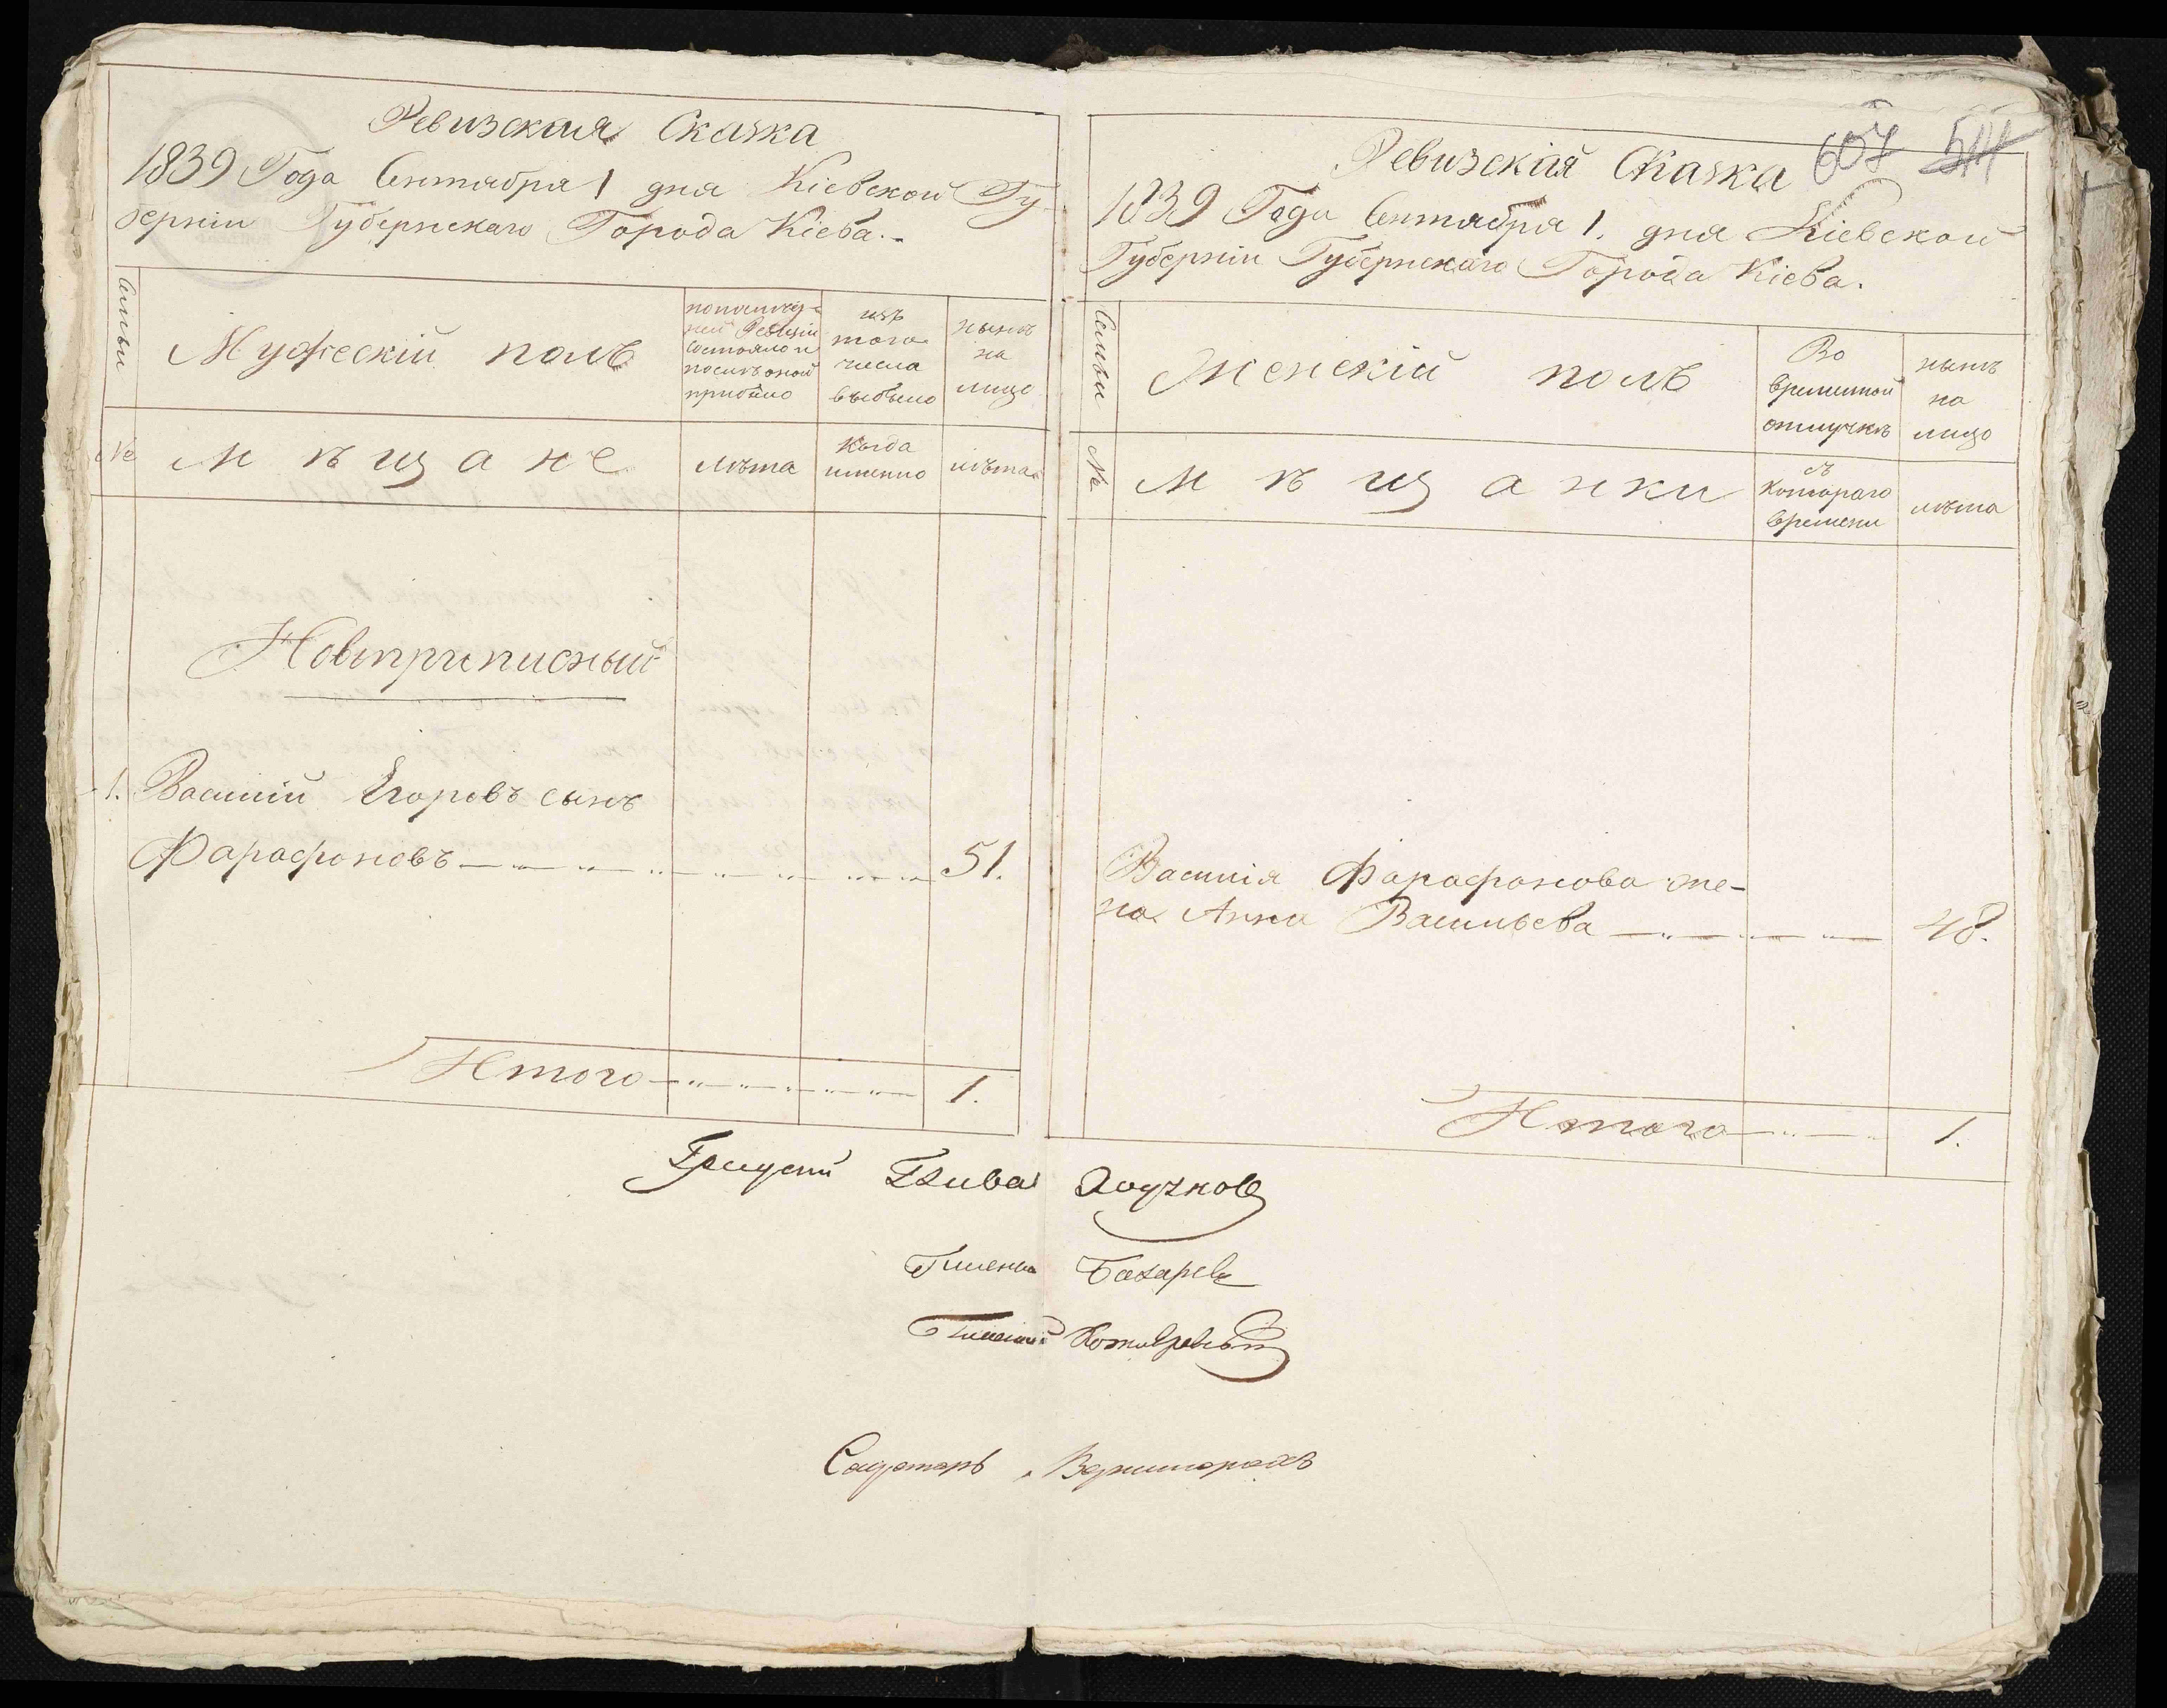 Ревизская Сказка
1839 Года Сентября 1 дня Кіевской Гу
берніи Губернскаго Города Кіева.
Семьи
Мужескій полъ
по послѣд-
ней Ревизіи
состояло и
послѣ оной
прибыло
изъ
того
числа
выбыло
нынѣ
на
лицо
№
мѣщане
лѣта
когда
именно
лѣта
Новоприписный
1. Василій Егоровъ сынъ
Фарафоновъ 51.
Итого 1.
607 544
Ревизская Сказка
1839 Года Сентября 1. дня Кіевской
Губерніи Губернскаго Города Кіева.
Семьи
Женскій полъ
Во
временной
отлучкѣ
нынѣ
на
лицо
№
мѣщанки
съ
котораго
времени
лѣта
Василія Фарафонова же-
на Анна Васильева 48.
Итого 1.
Глава Ходунов
Гласный
Гласный
Секретарь